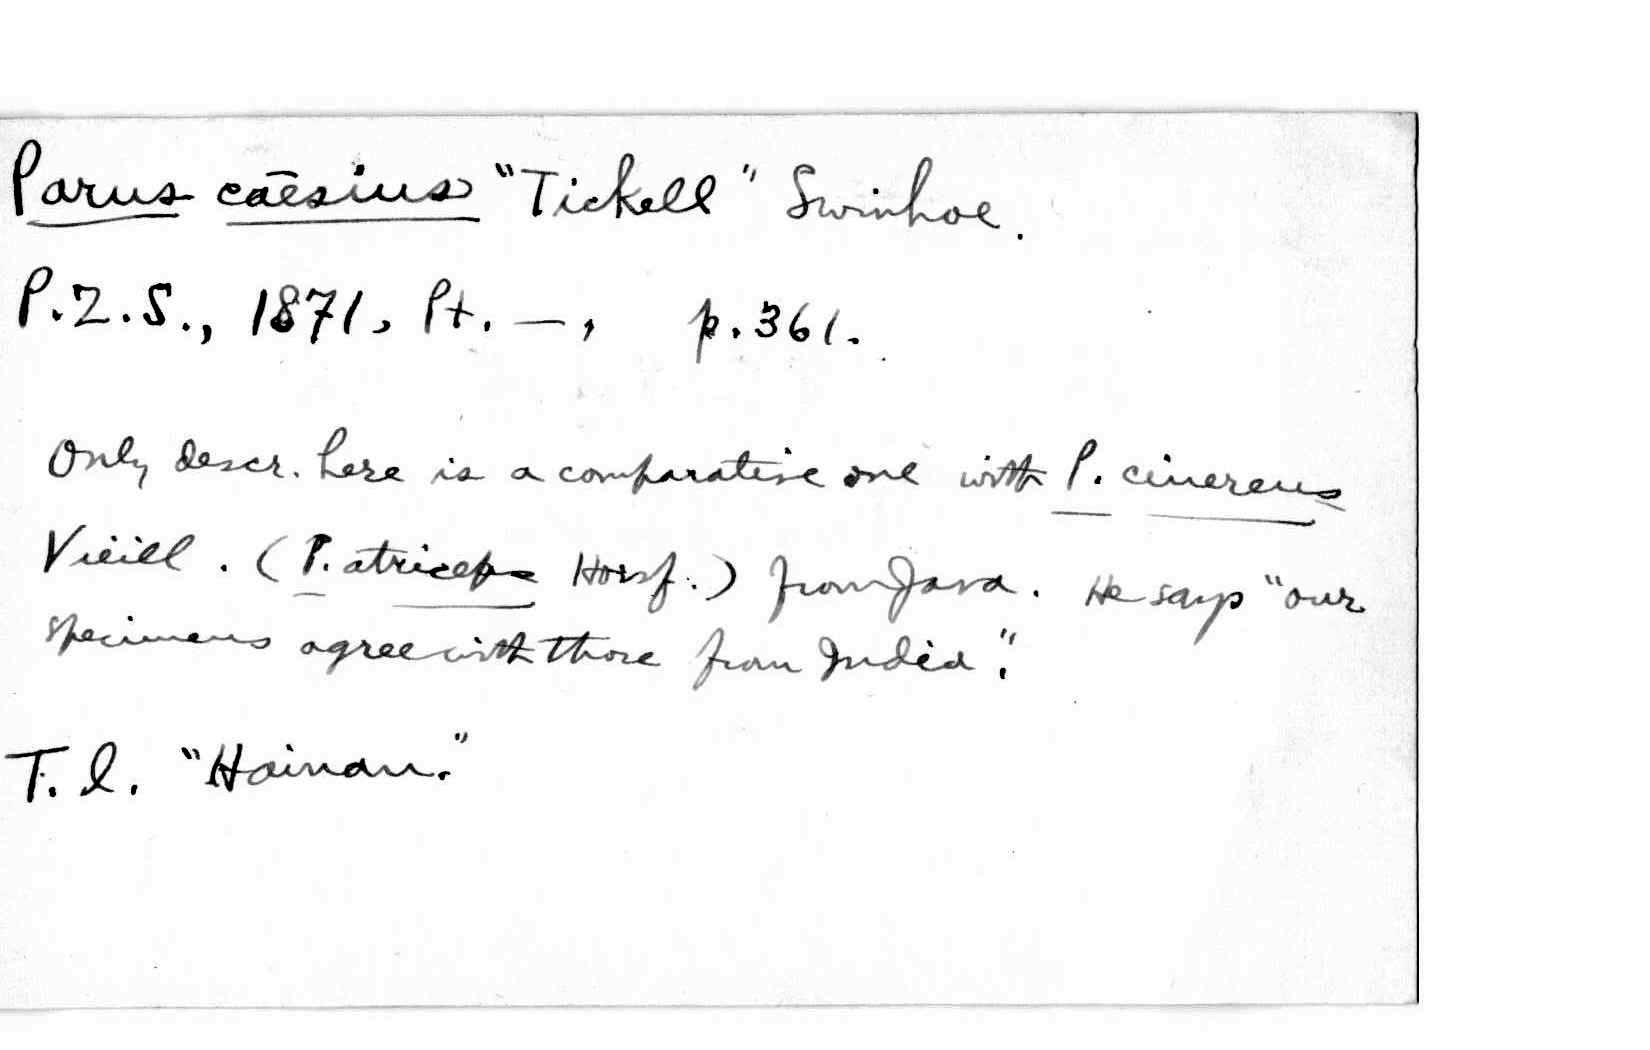 Parus caēsius "Tickell" Swinhoe.
P.Z.S., 1871, Pt. —, p. 361.
Only descr. here is a comparative one with P. cinereus
Vieill. (P. atriceps Horsf.) from Java. He says "our
specimens agree with those from India".
T. l. "Hainan."